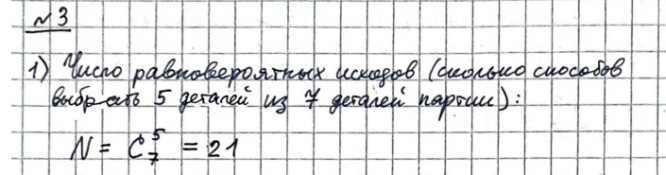 №3
1) Число равновероятных исходов (сколько способов
выбрать 5 деталей из 7 деталей партии):
N = C₇⁵ = 21